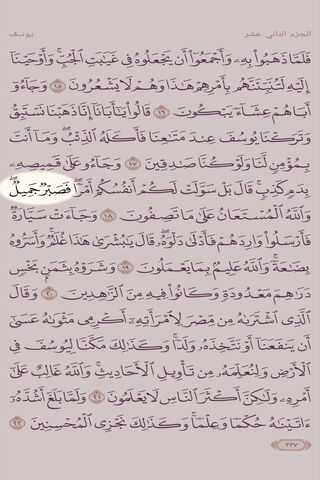 الجزء الثاني عشر
يوسف
فَلَمَّا ذَهَبُوا۟ بِهِۦ وَأَجْمَعُوٓا۟ أَن يَجْعَلُوهُ فِى غَيَـٰبَتِ ٱلْجُبِّ ۚ وَأَوْحَيْنَآ
إِلَيْهِ لَتُنَبِّئَنَّهُم بِأَمْرِهِمْ هَـٰذَا وَهُمْ لَا يَشْعُرُونَ ١٥ وَجَآءُوٓ
أَبَاهُمْ عِشَآءً يَبْكُونَ ١٦ قَالُوا۟ يَـٰٓأَبَانَآ إِنَّا ذَهَبْنَا نَسْتَبِقُ
وَتَرَكْنَا يُوسُفَ عِندَ مَتَـٰعِنَا فَأَكَلَهُ ٱلذِّئْبُ ۖ وَمَآ أَنتَ
بِمُؤْمِنٍ لَّنَا وَلَوْ كُنَّا صَـٰدِقِينَ ١٧ وَجَآءُو عَلَىٰ قَمِيصِهِۦ
بِدَمٍ كَذِبٍ ۚ قَالَ بَلْ سَوَّلَتْ لَكُمْ أَنفُسُكُمْ أَمْرًا ۖ فَصَبْرٌ جَمِيلٌ ۖ
وَٱللَّهُ ٱلْمُسْتَعَانُ عَلَىٰ مَا تَصِفُونَ ١٨ وَجَآءَتْ سَيَّارَةٌ
فَأَرْسَلُوا۟ وَارِدَهُمْ فَأَدْلَىٰ دَلْوَهُۥ ۖ قَالَ يَـٰبُشْرَىٰ هَـٰذَا غُلَـٰمٌ ۚ وَأَسَرُّوهُ
بِضَـٰعَةً ۚ وَٱللَّهُ عَلِيمٌۢ بِمَا يَعْمَلُونَ ١٩ وَشَرَوْهُ بِثَمَنٍۭ بَخْسٍ
دَرَٰهِمَ مَعْدُودَةٍ وَكَانُوا۟ فِيهِ مِنَ ٱلزَّٰهِدِينَ ٢٠ وَقَالَ
ٱلَّذِى ٱشْتَرَىٰهُ مِن مِّصْرَ لِٱمْرَأَتِهِۦٓ أَكْرِمِى مَثْوَىٰهُ عَسَىٰٓ
أَن يَنفَعَنَآ أَوْ نَتَّخِذَهُۥ وَلَدًا ۚ وَكَذَٰلِكَ مَكَّنَّا لِيُوسُفَ فِى
ٱلْأَرْضِ وَلِنُعَلِّمَهُۥ مِن تَأْوِيلِ ٱلْأَحَادِيثِ ۚ وَٱللَّهُ غَالِبٌ عَلَىٰٓ
أَمْرِهِۦ وَلَـٰكِنَّ أَكْثَرَ ٱلنَّاسِ لَا يَعْلَمُونَ ٢١ وَلَمَّا بَلَغَ أَشُدَّهُۥٓ
ءَاتَيْنَـٰهُ حُكْمًا وَعِلْمًا ۚ وَكَذَٰلِكَ نَجْزِى ٱلْمُحْسِنِينَ ٢٢
٢٣٧